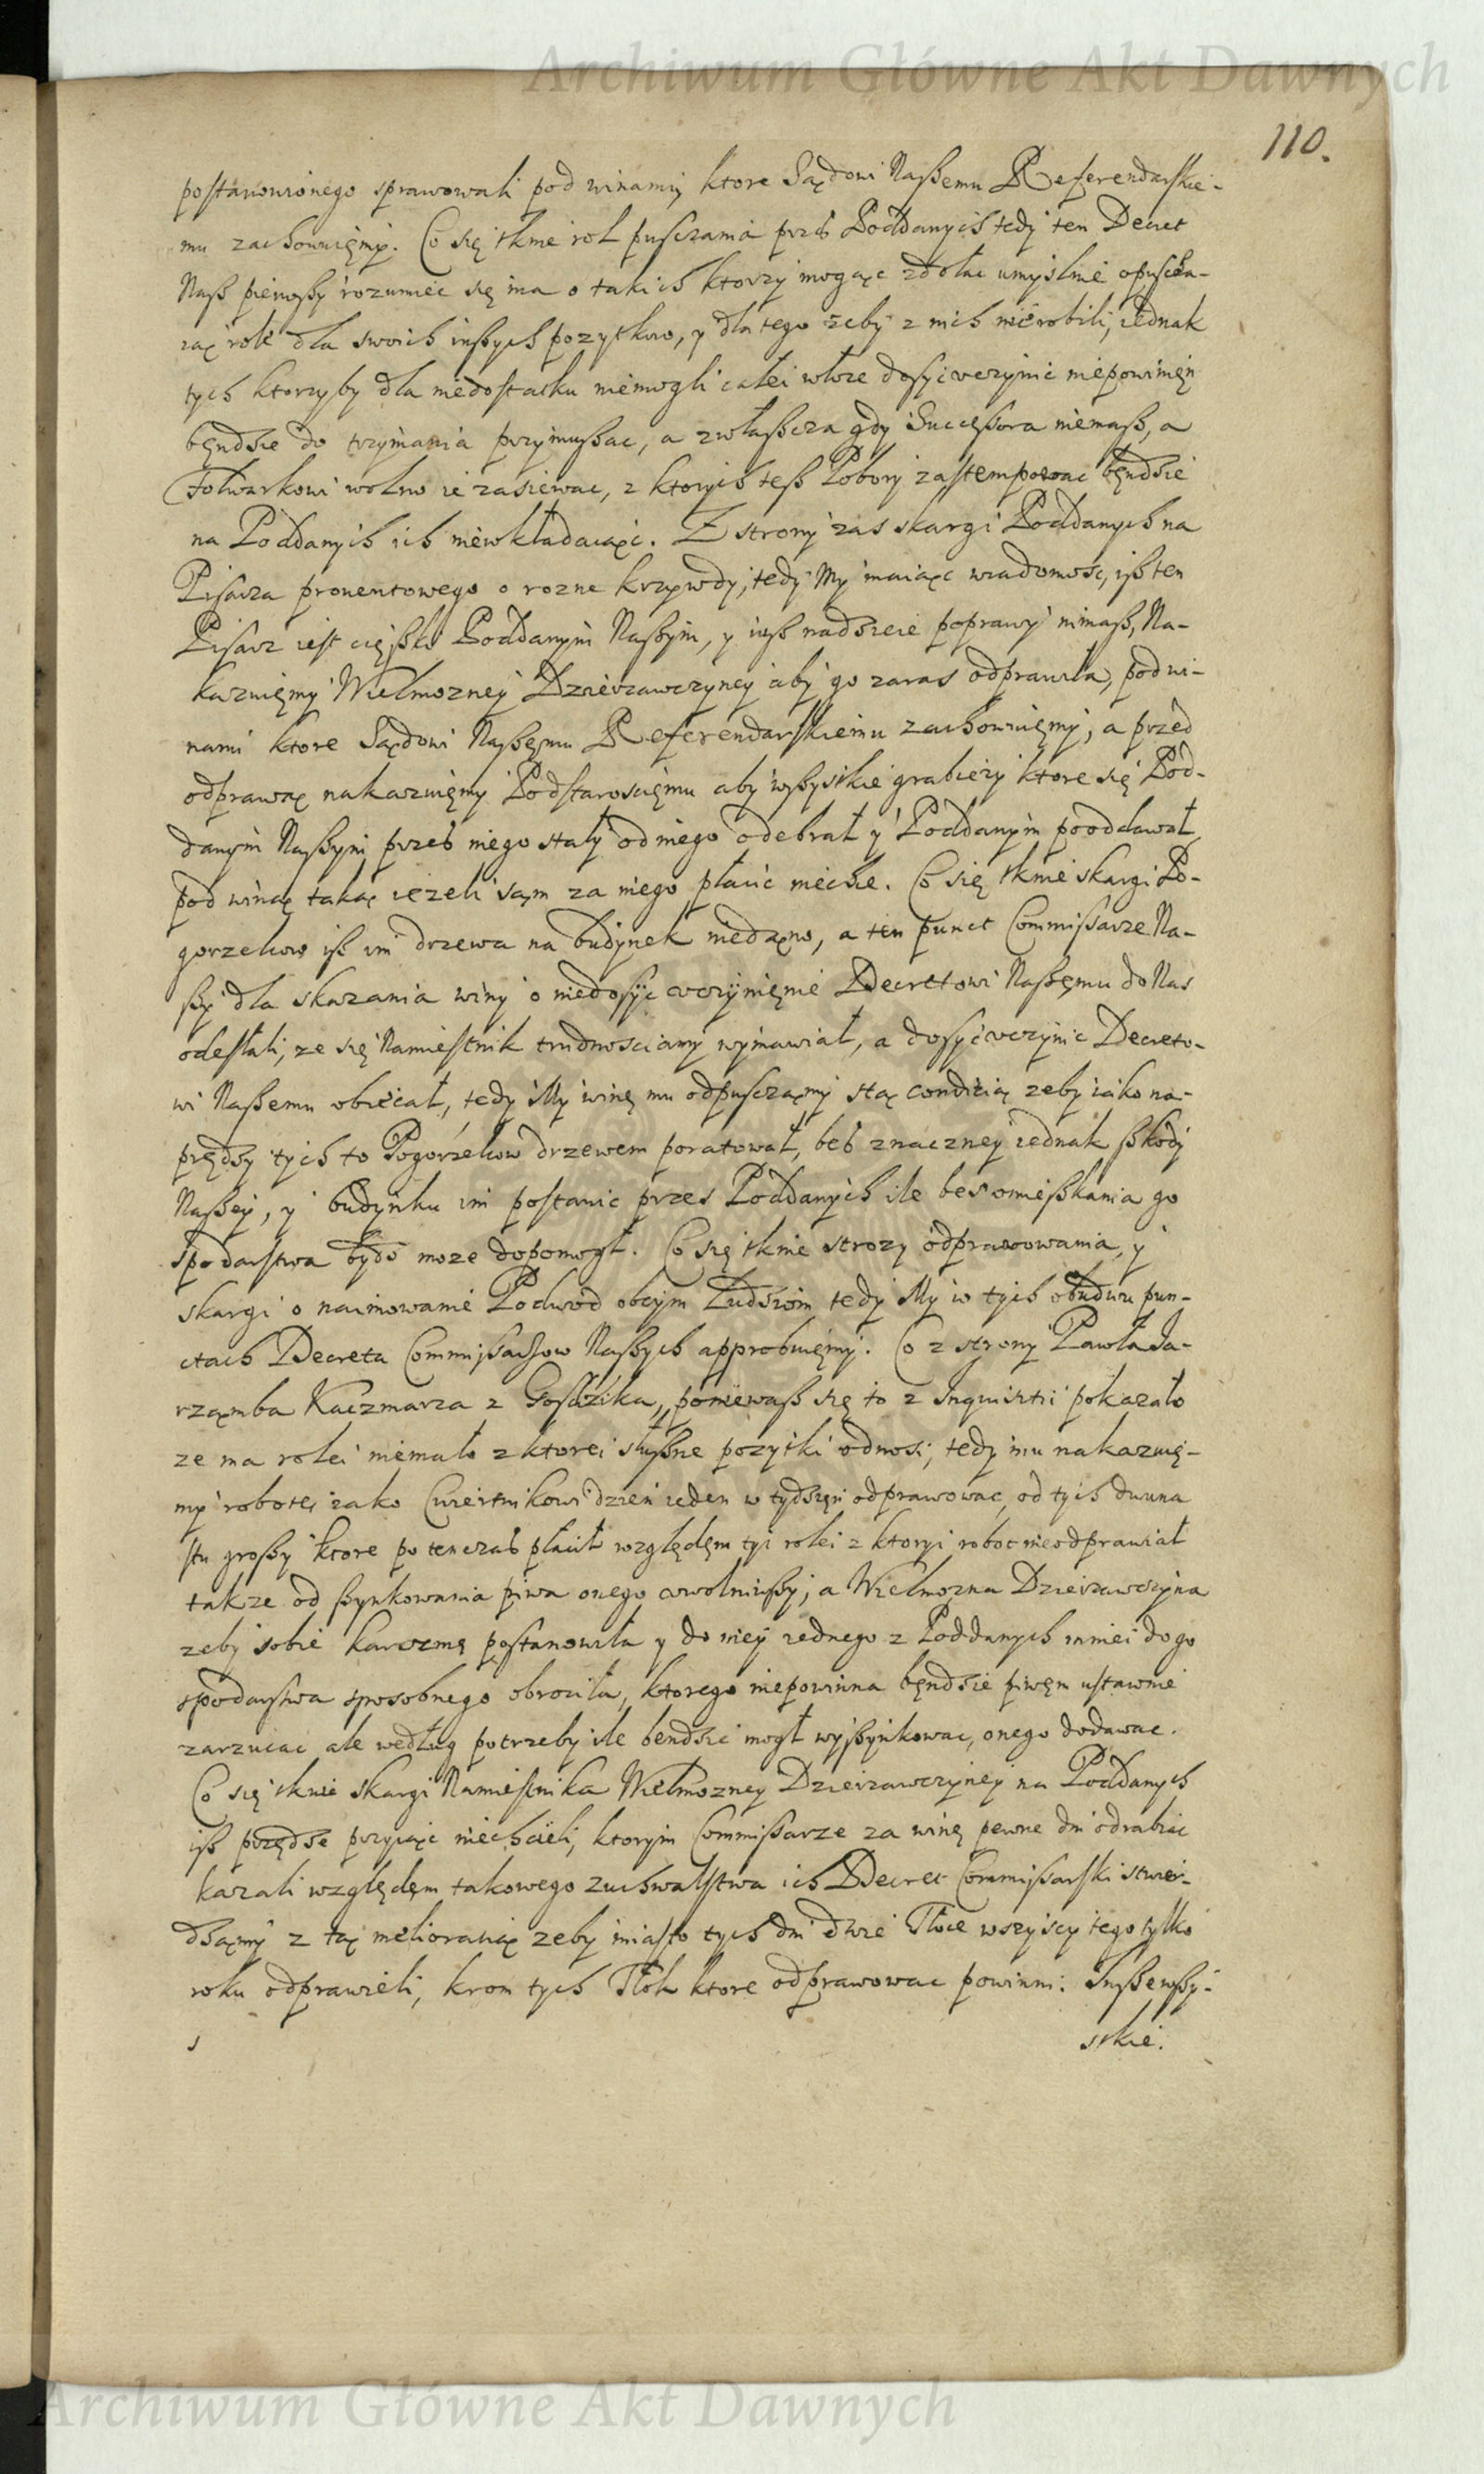 Archiwum Główne Akt Dawnych
110.
postanowionego sprawowali pod winamy ktore Sądowi Naszemu Referendarskie-
mu zachowuięmy. Co się tknie rol pusczania przes Poddanych tedy ten Decret
Nasz pierwszy rozumiec się ma o takich ktorzy mogąc zdołac umyslnie opuscza-
iąc role dla swoich inszych pozytkow, y dla tego zeby z nich nie robili, iednak
tych ktorzy by dla niedostatku niemogli całei włoce dosyc vczynic niepowinięn
będzie do trzymania przymuszac, a zwłaszcza gdy Successora niemasz, a
Folwarkowi wolno ie zasiewac, z ktorych tesz Pobory zastempowac będzie
na Poddanych ich niewkładaiąc. Z strony zas skargi Poddanych na
Pisarza prouentowego o rozne krzywdy, tedy My maiąc wiadomosc, isz ten
Pisarz iest cięszki Poddanym Naszym, y iusz nadzieie poprawy nimasz, Na-
kazuięmy Wielmozney Dzierzawczyney aby go zaras odprawiła, pod wi-
nami ktore Sądowi Naszęmu Referendarskiemu zachowuięmy, a przed
odprawą nakazuięmy Podstaroscięmu aby wszystkie grabiezy ktore się Pod-
danym Naszym przes niego stały od niego odebrał y Poddanym pooddawał,
pod winą taką iezeli sąm za niego płacic niechce. Co się tknie skargi Po-
gorzelcow isz im drzewa na budynek niedaąno, a ten punct Commissarze Na-
szy dla skazania winy o niedosyc vczynięnie Decretowi Naszęmu do Nas
odesłali, ze się Namiestnik trudnosciamy wymawiał, a dosyc vczynic Decreto-
wi Naszemu obiecał, tedy My winę mu odpusczaąmy s tą conditią zeby iako na-
prędzy tych to Pogorzelcow drzewem poratował, bes znaczney iednak szkody
Naszey, y budynku im postawic przes Poddanych ile bes omieszkania go
spodarstwa bydz moze dopomogł. Co się tknie strozy odprawowania, y
skargi o naimowanie Podwod obcym Ludziom tedy My w tych obudwu pun-
ctach Decreta Commissarzow Naszych approbuięmy. Co z strony Pawła Ja-
rząmba Kaczmarza z Gosdzika, poniewasz się to z Inquisitii pokazało
ze ma rolei niemało z ktorei słuszne pozytki odnosi, tedy mu nakazuię-
my robotę iako Cwiertnikowi dzien ieden w tydzięn odprawowac, od tych dwuna
stu groszy ktore po tenczas płacił względęm tyi rolei z ktoryi robot nieodprawiał
takze od szynkowania piwa onego vwolniwszy, a Wielmozna Dzierzawczyna
zeby sobie karczmę postanowiła y do niey iednego z Poddanych mniei do go
spodarstwa sposobnego obrociła, ktorego niepowinna będzie piwęm ustawnie
zarzucac ale według potrzeby ile bendzie mogł wyszynkowac, onego dodawac.
Co się tknie skargi Namiestnika Wielmozney Dzierzawczyney na Poddanych
isz przędze przyiąc niechcieli, ktorym Commissarze za winę pewne dni odrabiac
kazali względęm takowego zuchwalstwa ich Decret Commissarski stwier-
dzaąmy z tą melioratią zeby miasto tych dni dwie Tłoce wszyscy tego tylko
roku odprawieli, krom tych Tłok ktore odprawowac powinni. Insze wszy-
stkie.
Archiwum Główne Akt Dawnych